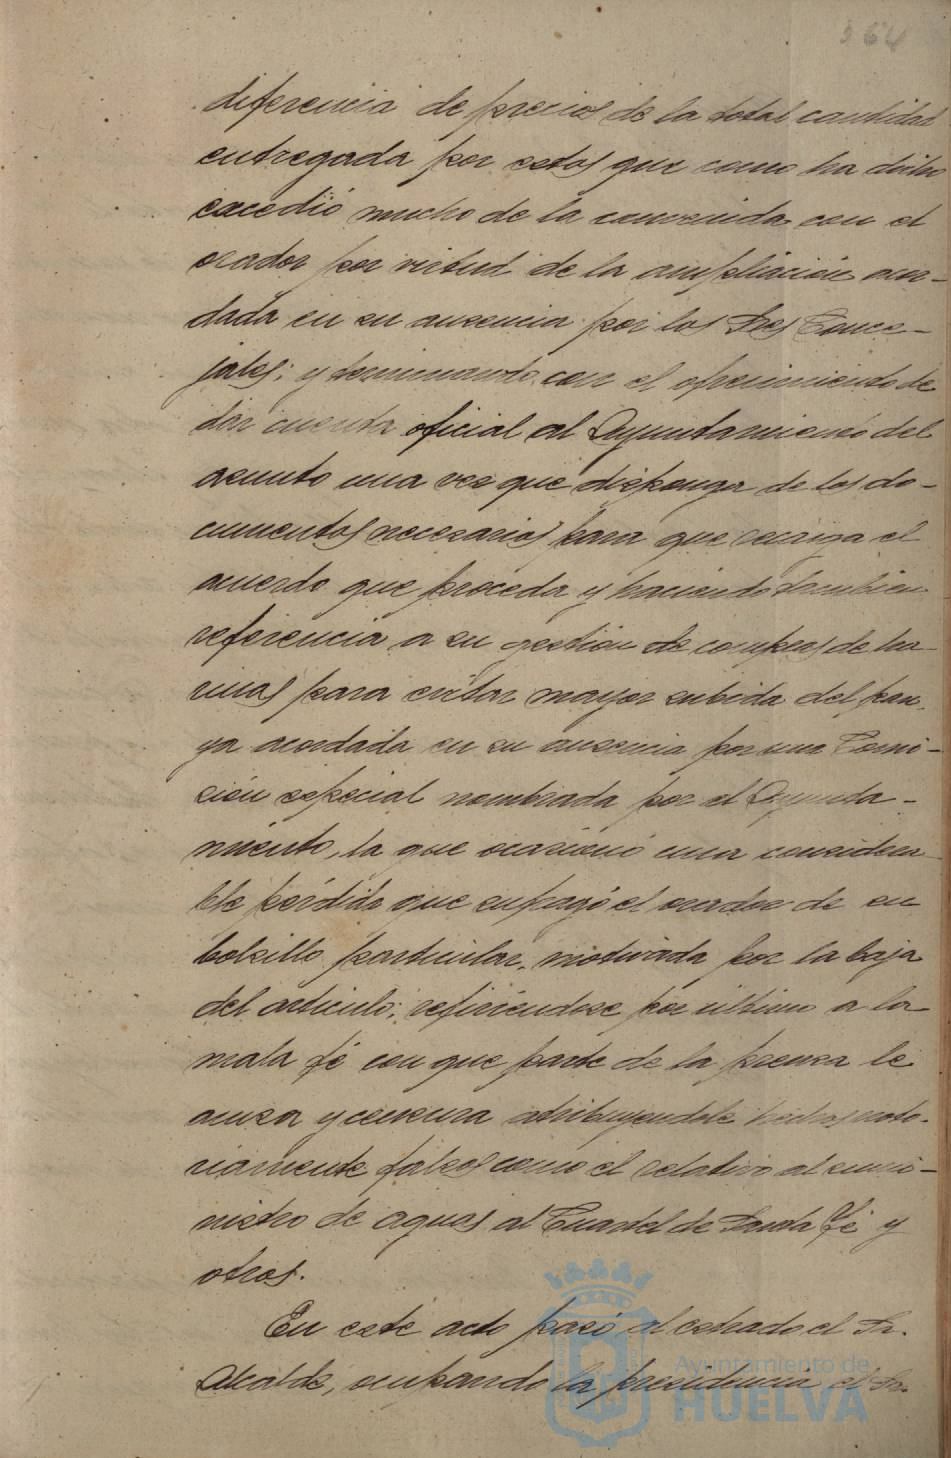 364
diferencia de precios de la total cantidad
entregada por estos que como ha dicho
excedió mucho de la convenida con el
orador por virtud de la ampliación acor-
dada en su ausencia por los Sres Conce-
jales; y terminando con el ofrecimiento de
dar cuenta oficial al Ayuntamiento del
asunto una vez que disponga de los do-
cumentos necesarios para que recaiga el
acuerdo que proceda y haciendo tambien
referencia a su gestión de compras de ha-
rinas para evitar mayor subida del pan,
ya acordada en su ausencia por una Comi-
sión especial nombrada por el Ayunta-
miento, la que ocasionó una considera-
ble pérdida que sufragó el orador de su
bolsillo particular, motivada por la baja
del artículo; refiriéndose por último a la
mala fé con que parte de la prensa le
acusa y censura atribuyendole hechos noto-
riamente falsos como el relativo al sumi-
nistro de aguas al Cuartel de Santa Fé y
otros.
En este acto pasó al estrado el Sr.
Alcalde, ocupando la presidencia el Sr.
Ayuntamiento de
HUELVA